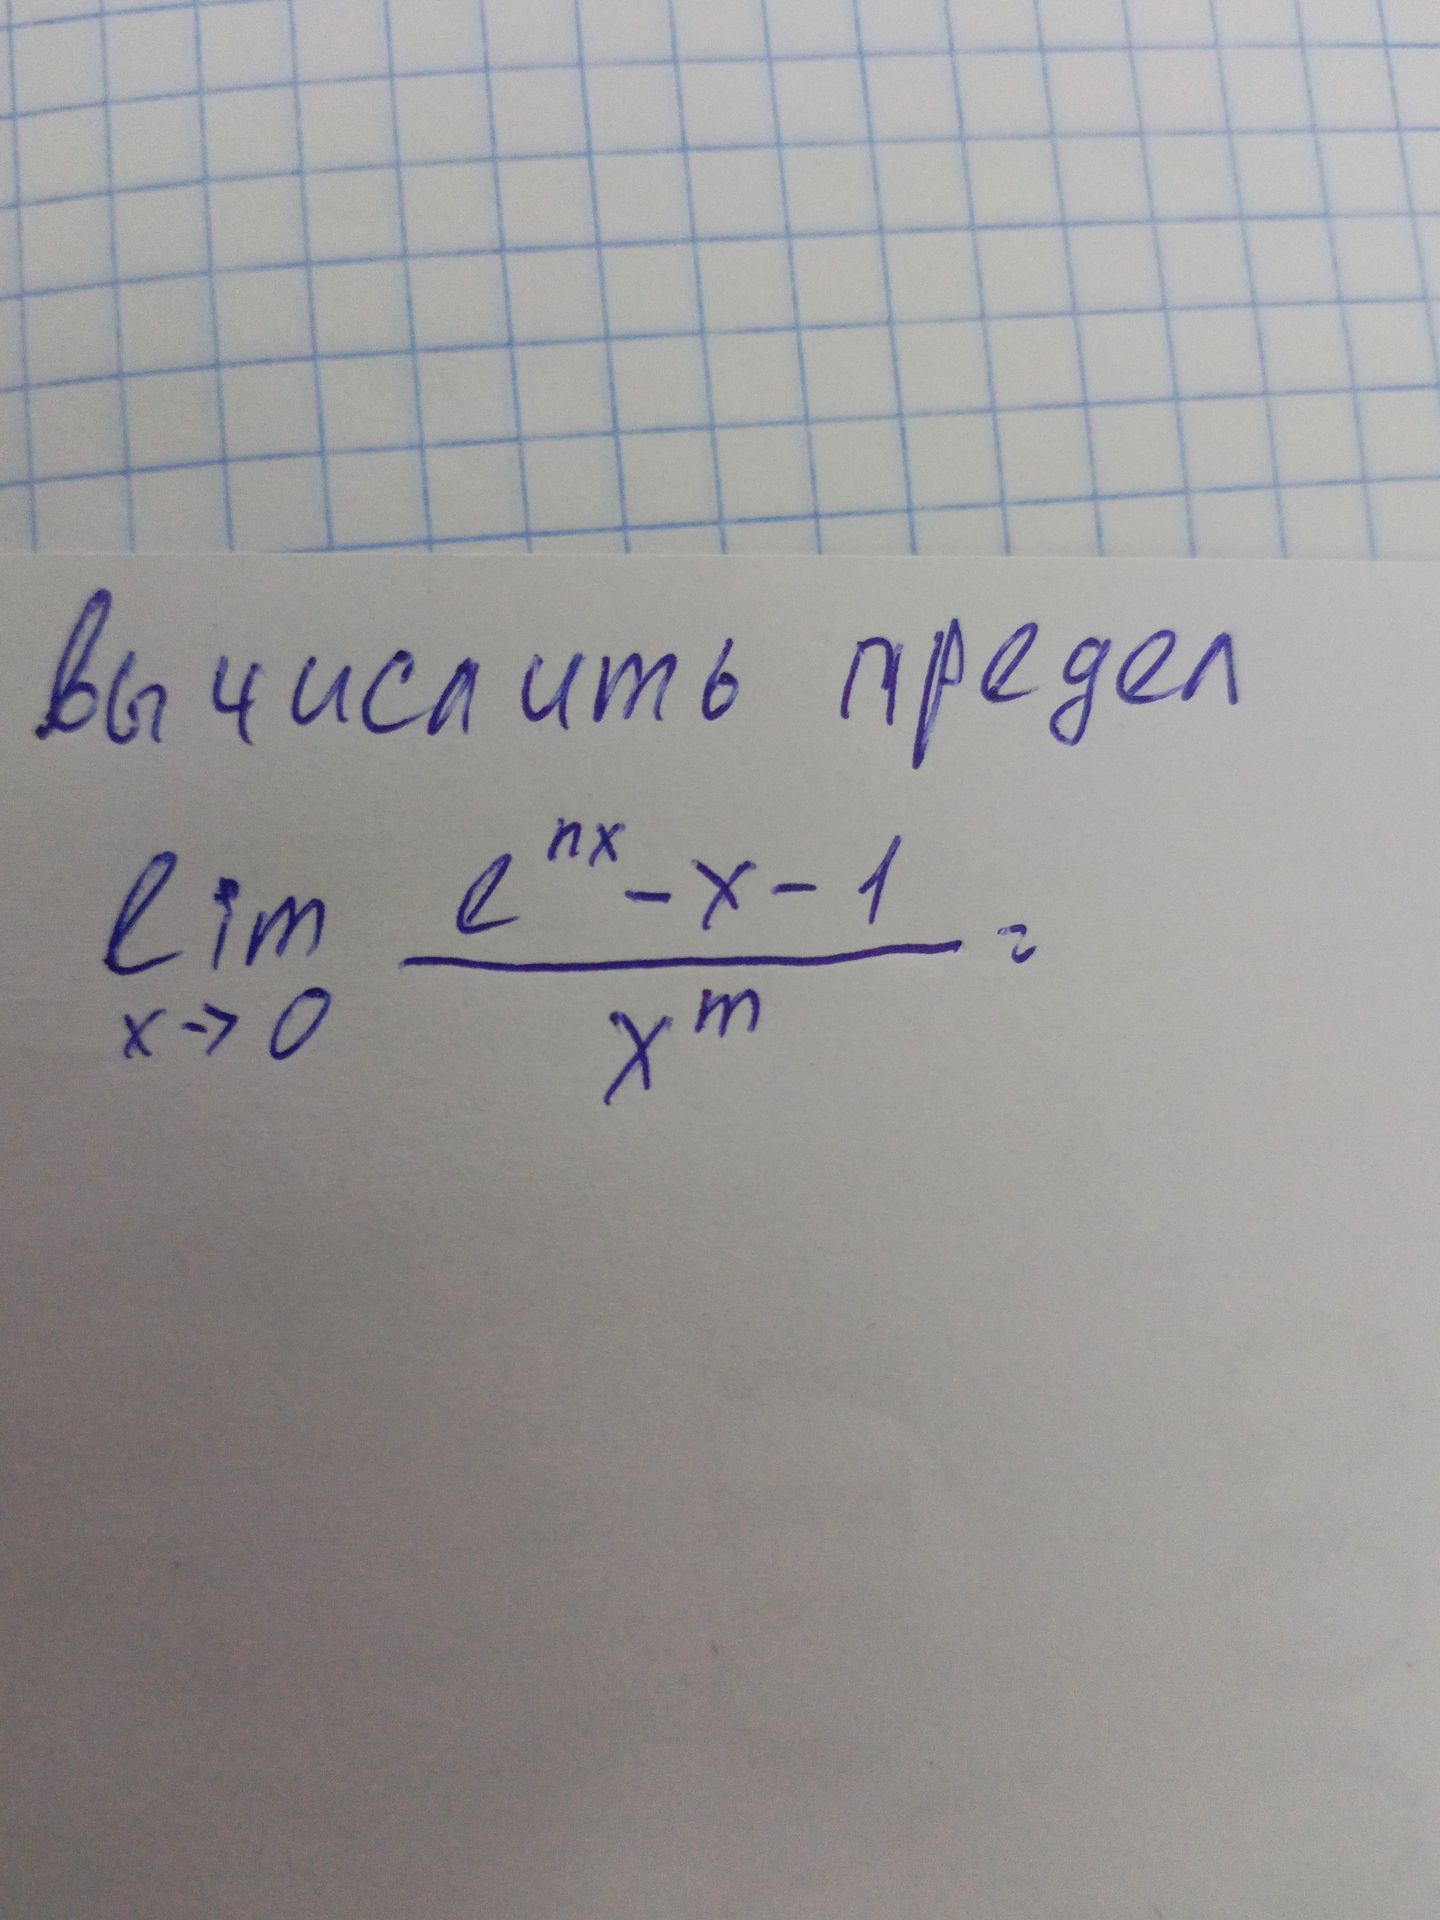 Вычислить предел
lim e^{nx} - x - 1 =
x→0 x^m